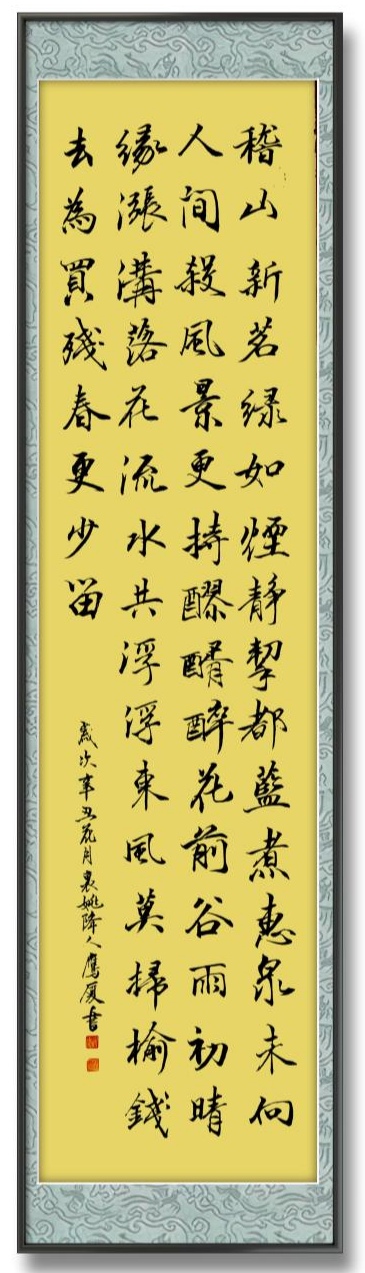 稽山新茗緑如煙靜挈都藍煮惠泉未向
人間殺風景更持醪醑醉花前谷雨初晴
緣漲溝落花流水共浮浮東風莫掃榆錢
去為買殘春更少留
歲次辛丑花月人鷹厦書